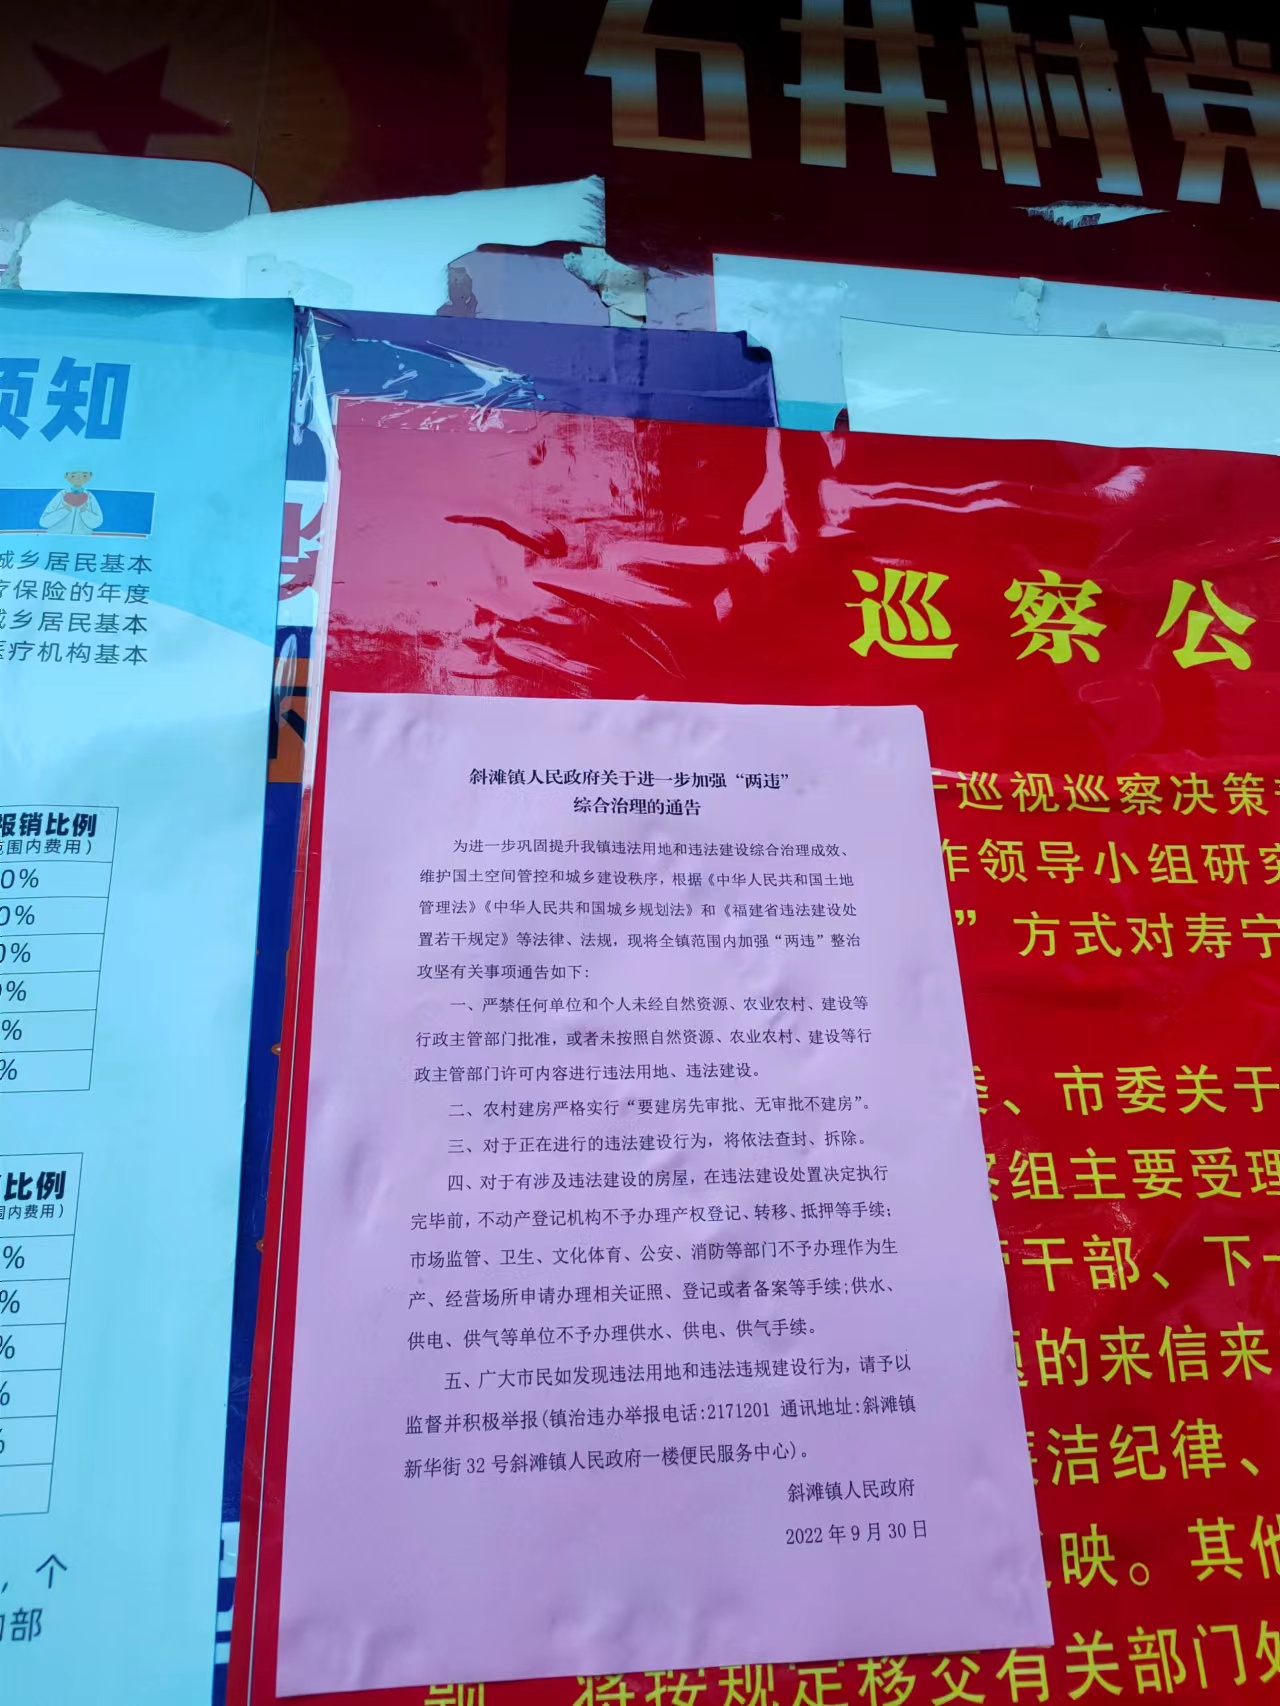 石井村党
须知
城乡居民基本
疗保险的年度
城乡居民基本
医疗机构基本
报销比例
范围内费用）
0%
0%
0%
%
%
%
比例
围内费用）
%
%
%
%
，个
部
巡察公
斜滩镇人民政府关于进一步加强“两违”
综合治理的通告
为进一步巩固提升我镇违法用地和违法建设综合治理成效、
维护国土空间管控和城乡建设秩序，根据《中华人民共和国土地
管理法》《中华人民共和国城乡规划法》和《福建省违法建设处
置若干规定》等法律、法规，现将全镇范围内加强“两违”整治
攻坚有关事项通告如下:
一、严禁任何单位和个人未经自然资源、农业农村、建设等
行政主管部门批准，或者未按照自然资源、农业农村、建设等行
政主管部门许可内容进行违法用地、违法建设。
二、农村建房严格实行“要建房先审批、无审批不建房”。
三、对于正在进行的违法建设行为，将依法查封、拆除。
四、对于有涉及违法建设的房屋，在违法建设处置决定执行
完毕前，不动产登记机构不予办理产权登记、转移、抵押等手续；
市场监管、卫生、文化体育、公安、消防等部门不予办理作为生
产、经营场所申请办理相关证照、登记或者备案等手续;供水、
供电、供气等单位不予办理供水、供电、供气手续。
五、广大市民如发现违法用地和违法违规建设行为，请予以
监督并积极举报(镇治违办举报电话:2171201 通讯地址:斜滩镇
新华街 32 号斜滩镇人民政府一楼便民服务中心)。
斜滩镇人民政府
2022 年 9 月 30 日
巡视巡察决策
作领导小组研究
”方式对寿宁
委、市委关于
察组主要受理
干部、下一
题的来信来
廉洁纪律、
反映。其他
将按规定移交有关部门处